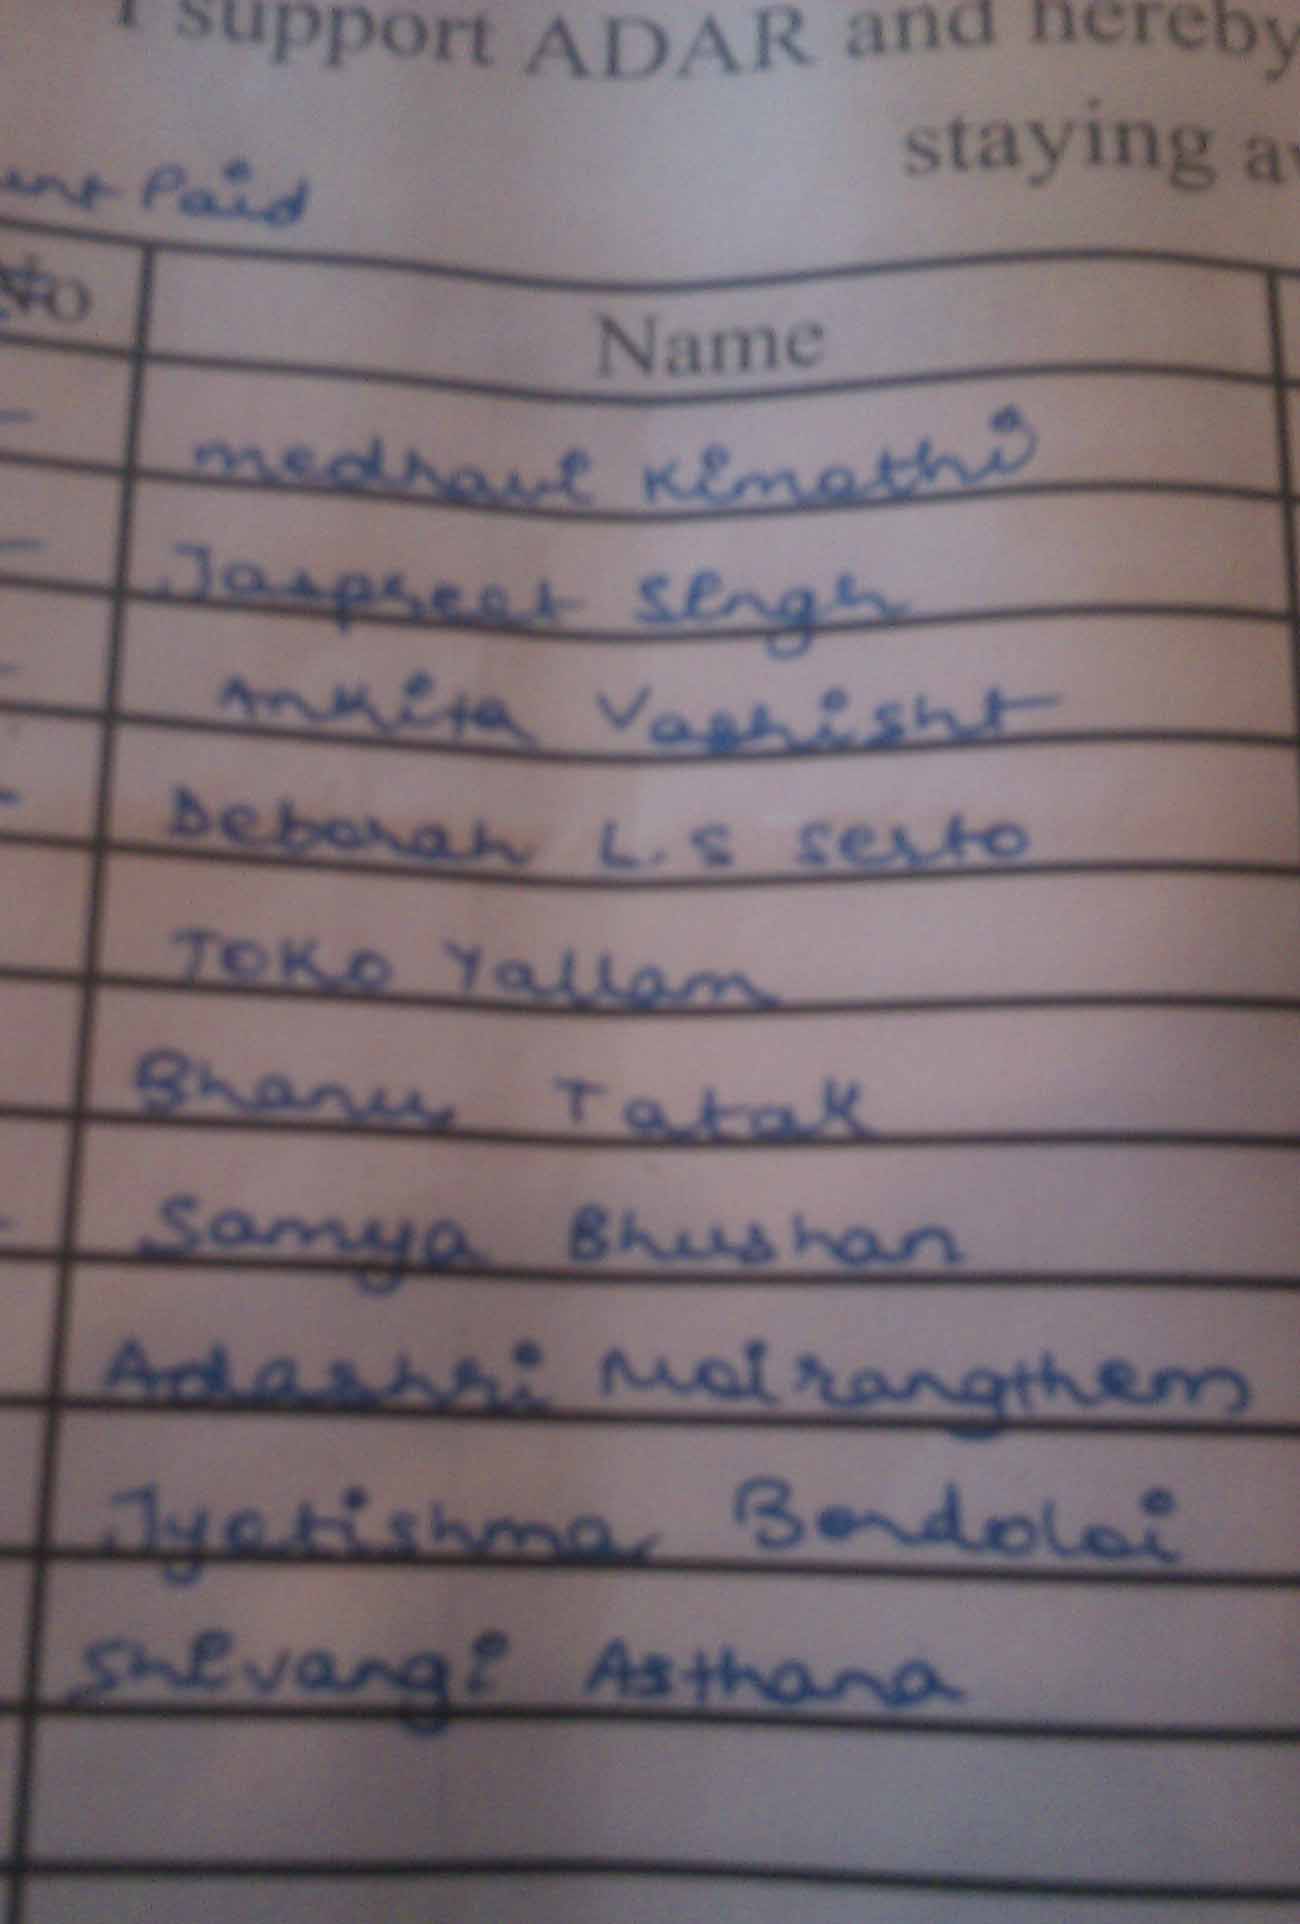 I support ADAR and hereby
staying
Paid
No
Name
Medhavi Kimothi
Jaspreet Singh
Ankita Vashisht
Deborah L.S Serto
Toko Yallam
Bhanu Tatak
Samya Bhushan
Adashri Moirangthem
Jyotishma Bordoloi
Shivangi Asthana